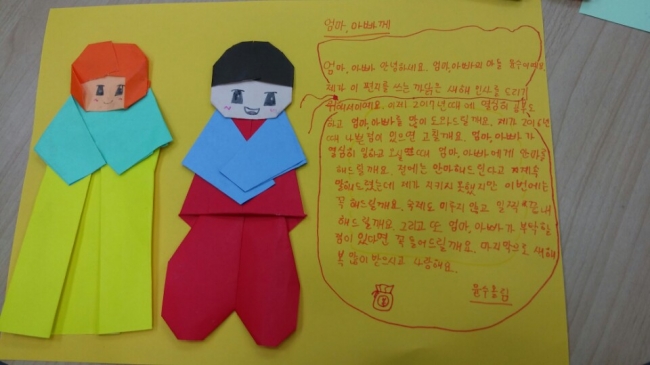 엄마, 아빠께
엄마, 아빠 안녕하세요. 엄마, 아빠의 아들 윤수예요.
제가 이 편지를 쓰는 까닭은 새해 인사를 드리기
위해서이에요. 이제 2017년 때에 열심히 공부도
하고 엄마, 아빠를 많이 도와드릴게요. 제가 2016년
때 나쁜 점이 있으면 고칠께요. 엄마, 아빠가
열심히 일하고 오실 때 엄마, 아빠에게 안마를
해드릴께요. 전에는 안마해드린다고 계속
말해드렸는데 제가 지키지 못했지만 이번에는
꼭 해드릴께요. 숙제도 미루지 않고 일찍 끝내
해드릴께요. 그리고 또, 엄마, 아빠가 부탁할
점이 있다면 꼭 들어드릴깨요. 마지막으로 새해
복 많이 받으시고 사랑해요.
윤수올림